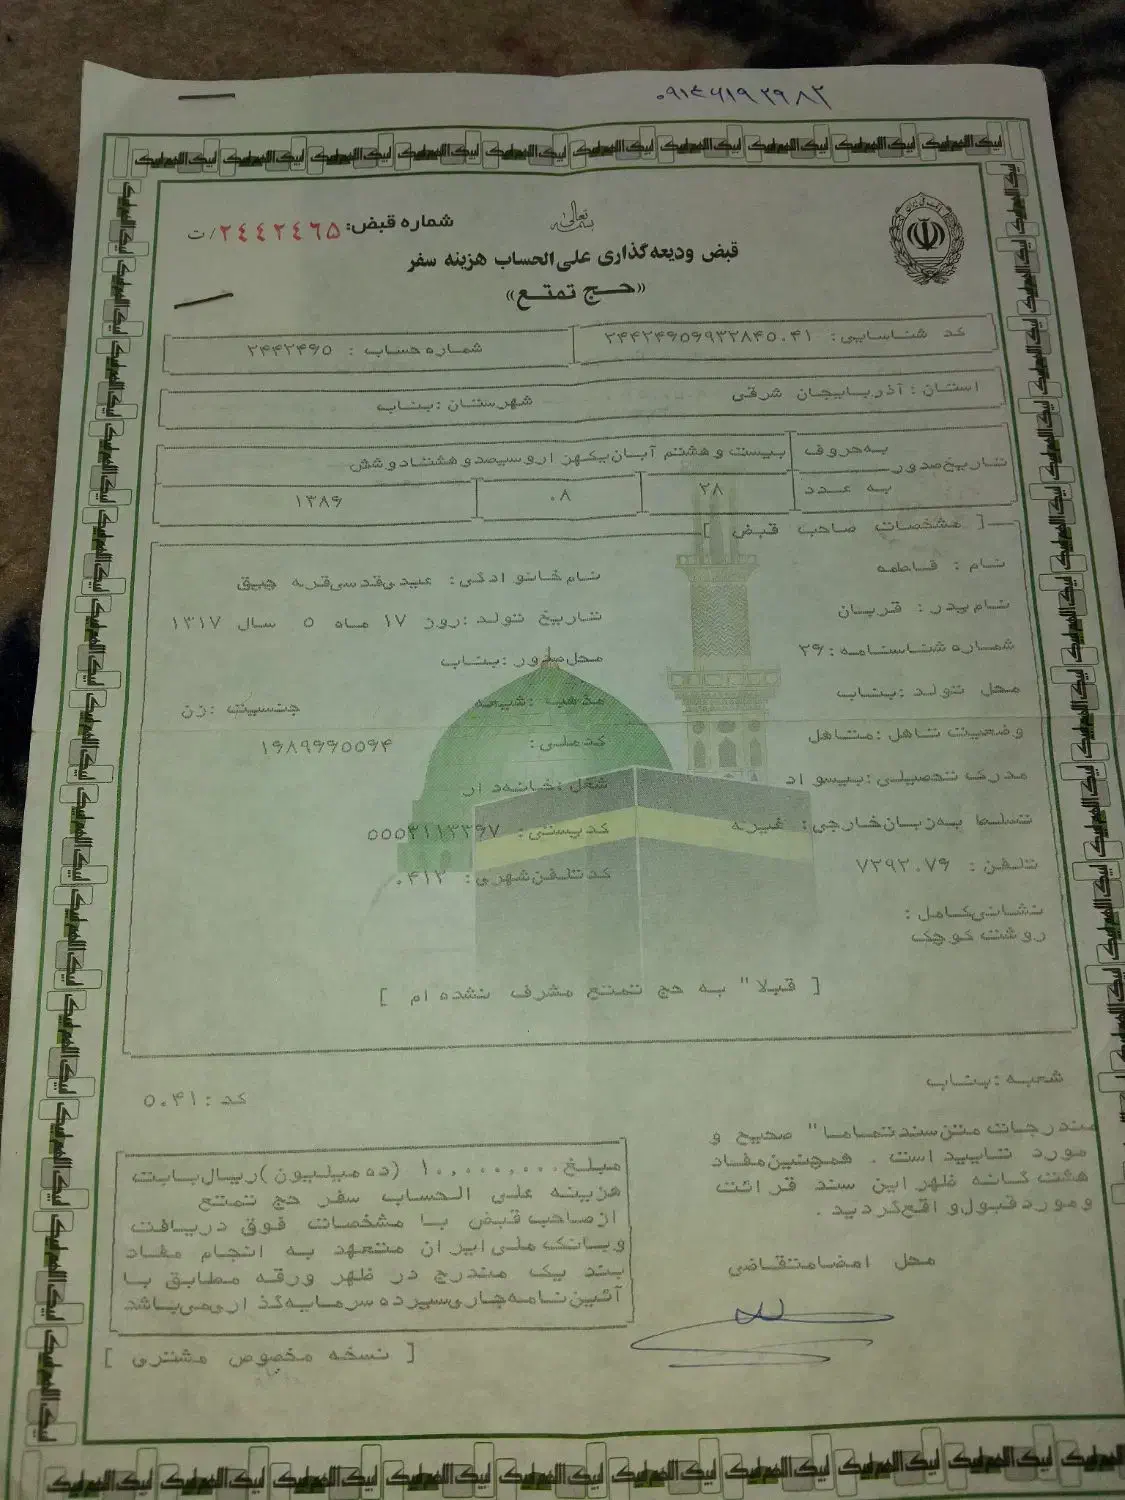 ۰۹۱۴۶۱۹۲۹۸۲
بسمه تعالی
شماره قبض: ۲۴۴۲۴۶۵/ت
قبض ودیعه گذاری علی الحساب هزینه سفر
«حج تمتع»
کد شناسایی: ۲۴۴۲۴۶۵۶۹۳۲۸۴۵۰۴۱
شماره حساب : ۲۴۴۲۴۶۵
استان : آذربایجان شرقی
شهرستان :بناب
تاریخ صدور
به حروف
بیست و هشتم آبان یکهزار و سیصد و هشتاد و شش
به عدد
۲۸
۰۸
۱۳۸۶
[ مشخصات صاحب قبض ]
نام : فاطمه
نام خانوادگی: عیدی قدسی قره چپق
نام پدر: قربان
تاریخ تولد :روز ۱۷ ماه ۵ سال ۱۳۱۷
شماره شناسنامه :۲۶
محل صدور :بناب
محل تولد :بناب
مذهب :شیعه
جنسیت :زن
وضعیت تاهل :متاهل
کدملی: ۱۶۸۹۹۹۰۵۹۴
مدرک تحصیلی :بیسواد
شغل :خانه دار
تسلط به زبان خارجی: غیره
کد پستی: ۵۵۵۳۱۱۳۳۶۷
تلفن : ۷۲۹۲۰۷۶
کد تلفن شهری: ۰۴۱۲
نشانی کامل :
روشت کوچک
[ قبلا" به حج تمتع مشرف نشده ام ]
شعبه :بناب
کد :۵۰۴۱
مندرجات متن سند تماما" صحیح و
مورد تایید است . همچنین مفاد
هشت گانه ظهر این سند قرائت
و مورد قبول واقع گردید .
محل امضا متقاضی
مبلغ ۱۰,۰۰۰,۰۰۰ (ده میلیون )ریال بابت
هزینه علی الحساب سفر حج تمتع
از صاحب قبض با مشخصات فوق دریافت
و بانک ملی ایران متعهد به انجام مفاد
بند یک مندرج در ظهر ورقه مطابق با
آئین نامه جاری سپرده سرمایه گذاری می باشد
[ نسخه مخصوص مشتری ]